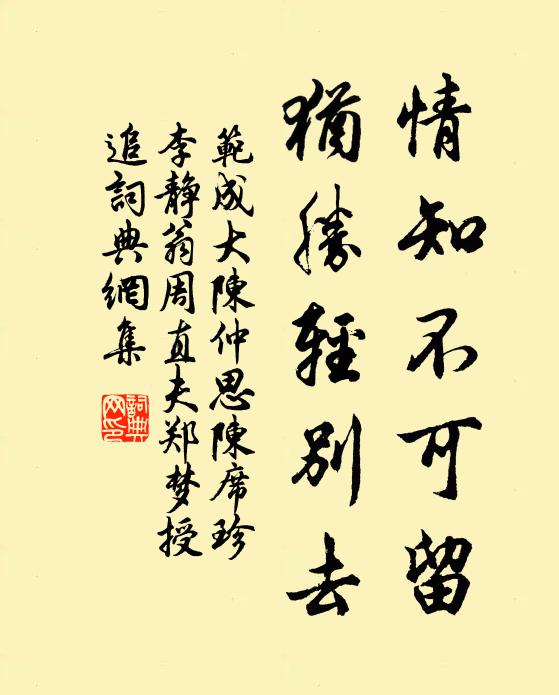 情知不可留
猶勝輕別去
範成大陳仲思陳席珍
李靜翁周直夫郑梦授
追詞典網集
詞典
网印